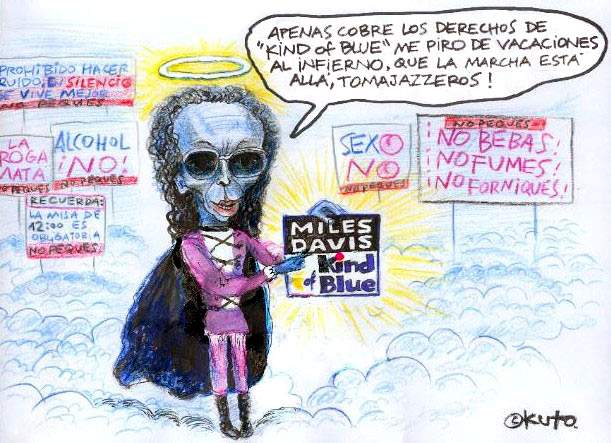 APENAS COBRE LOS DERECHOS DE
"KIND of BLUE" ME PIRO DE VACACIONES
AL INFIERNO, QUE LA MARCHA ESTÁ
ALLÁ, TOMAJAZZEROS!
PROHIBIDO HACER
RUIDO, EN SILENCIO
SE VIVE MEJOR
NO PEQUES
LA
DROGA
MATA
NO PEQUES
ALCOHOL
¡NO!
NO PEQUES
RECUERDA:
LA MISA DE
12:00 ES
OBLIGATORIA
NO PEQUES
SEXO
NO
NO PEQUES
NO PEQUES
¡NO BEBAS!
¡NO FUMES!
¡NO FORNIQUES!
MILES
DAVIS
Kind
of Blue
©Kuto.